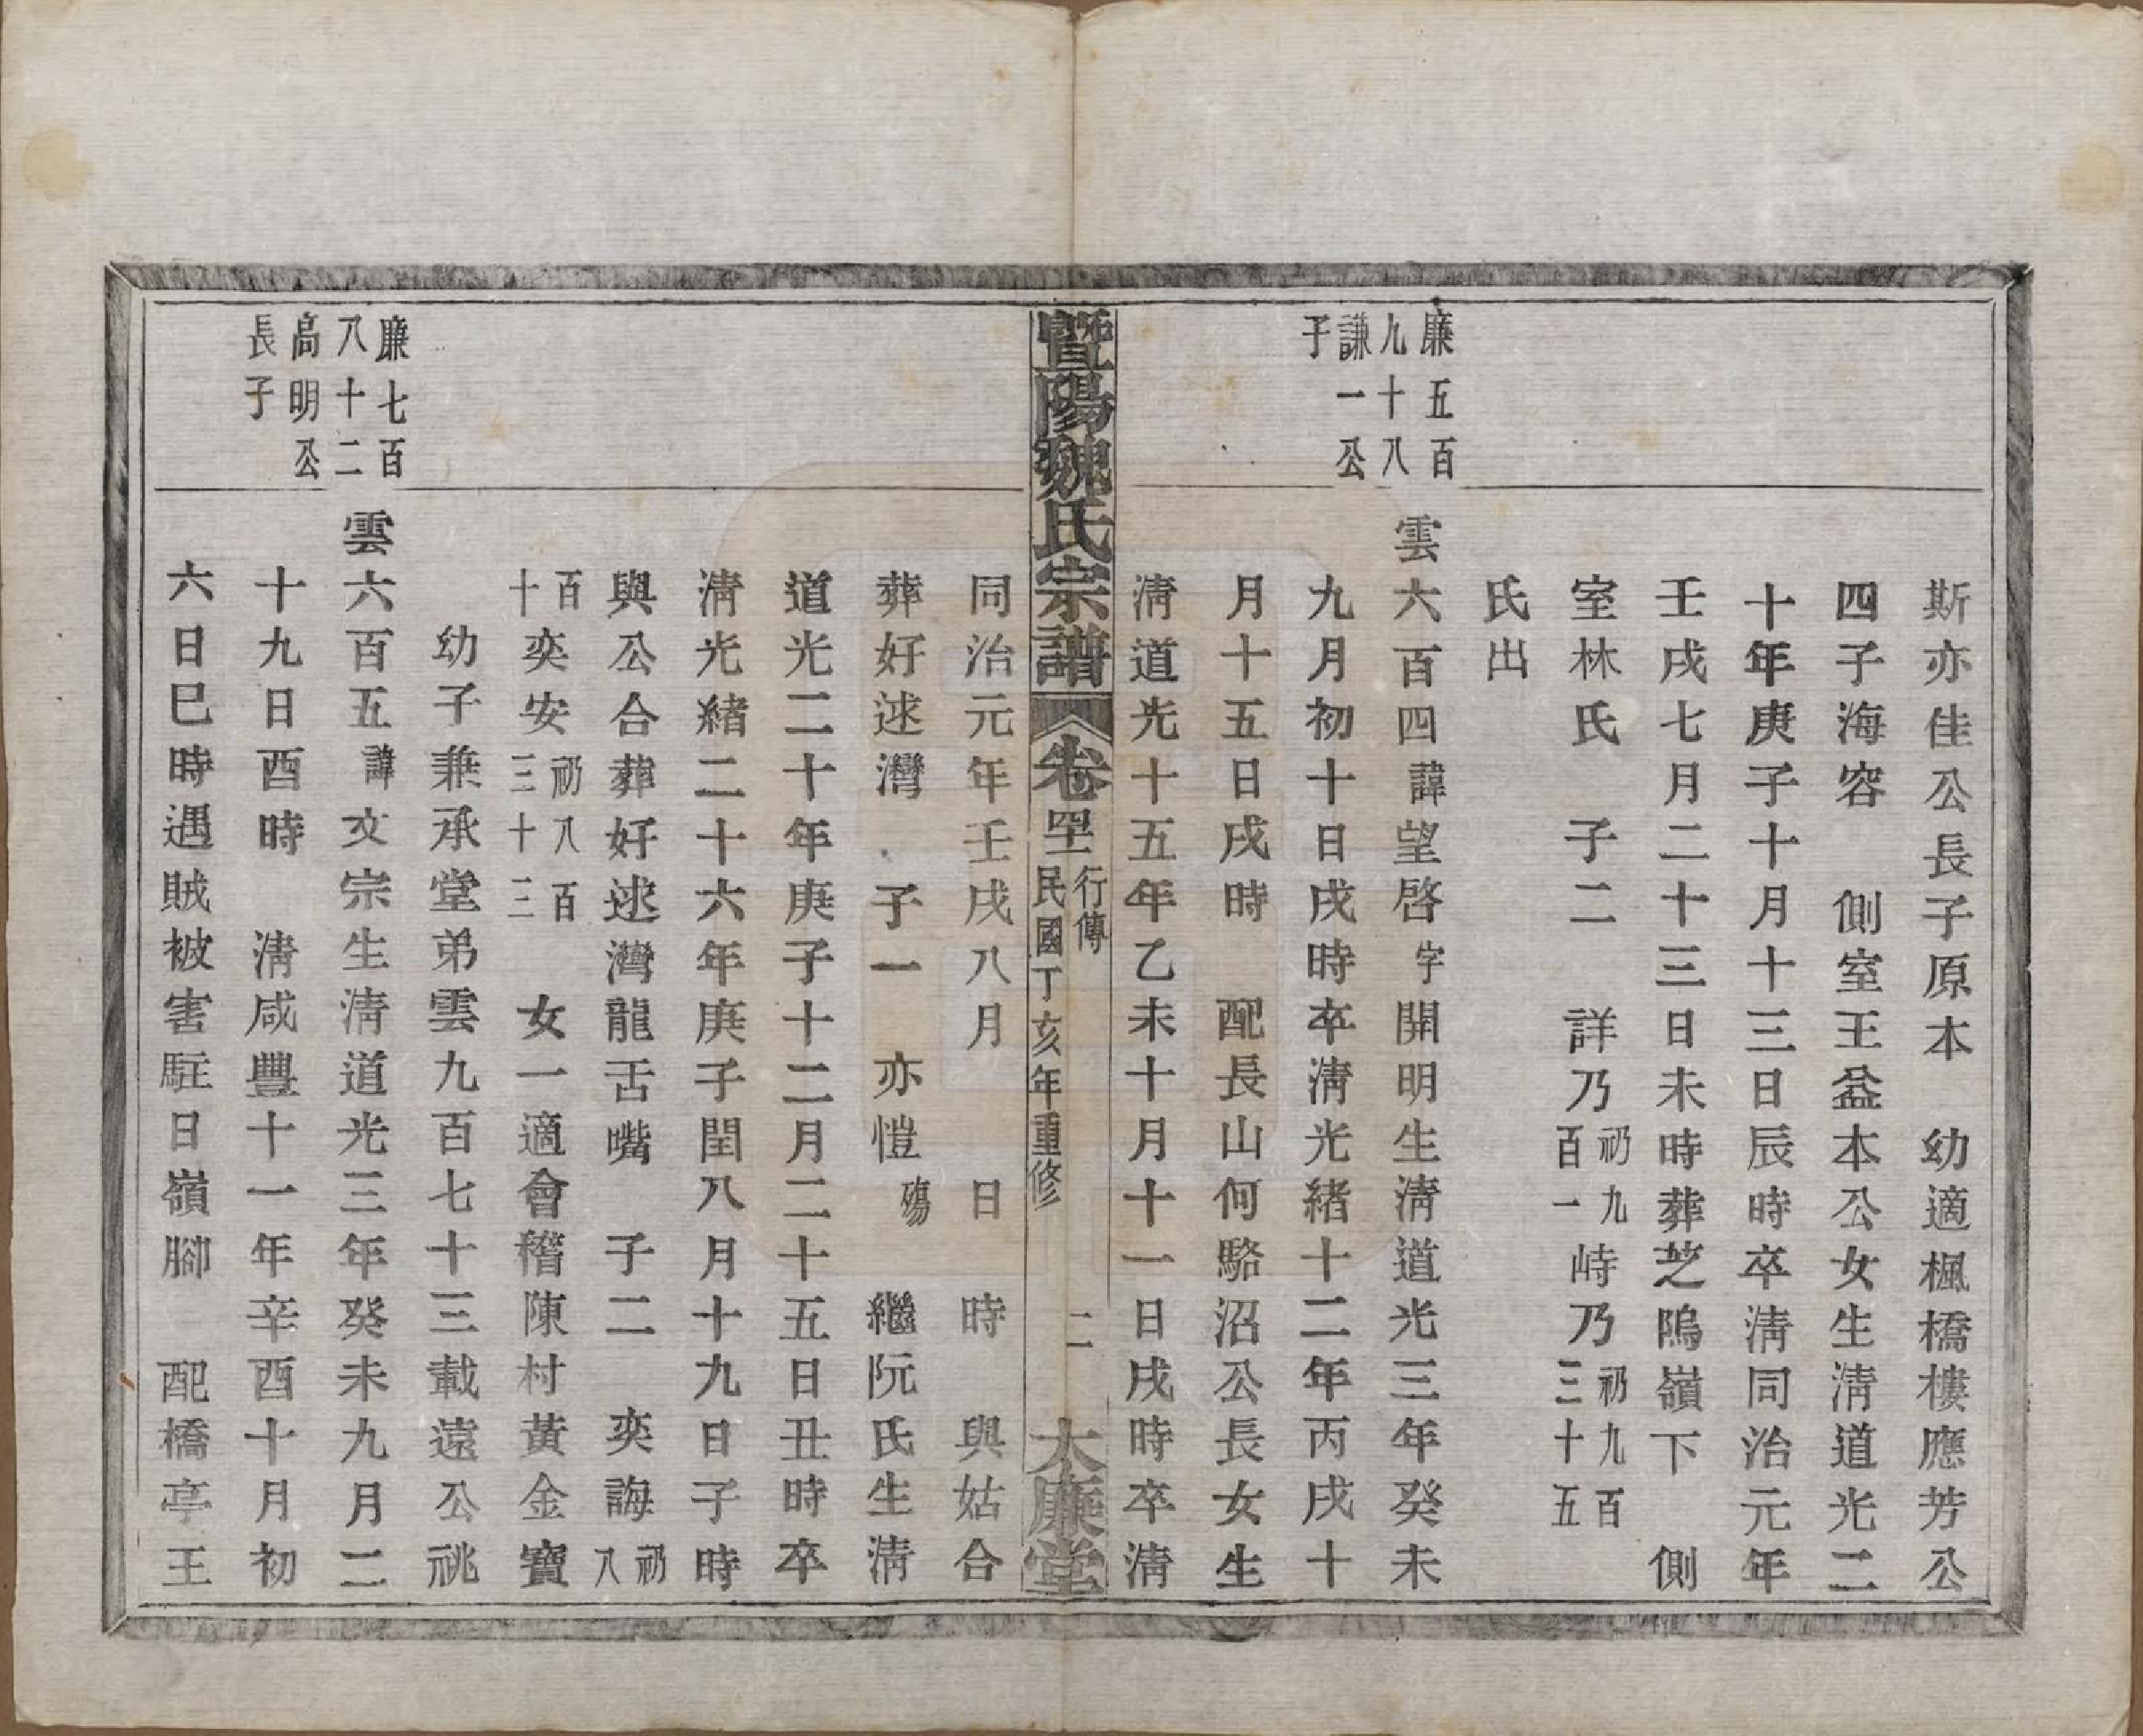 斯亦佳公長子原本　幼適楓橋樓應芳公
四子海容　側室王益本公女生淸道光二
十年庚子十月十三日辰時卒淸同治元年
壬戌七月二十三日未時葬芝隖嶺下　側
室林氏　子二　詳乃祁九百一峙乃祁九百三十五
氏出
廉五百
九十八
謙一公
子
雲六百四諱望啓字開明生淸道光三年癸未
九月初十日戌時卒淸光緒十二年丙戌十
月十五日戌時　配長山何駱沼公長女生
淸道光十五年乙未十月十一日戌時卒淸
暨陽魏氏宗譜　卷四十一　行傳　民國丁亥年重修　二　大廉堂
同治元年壬戌八月　日　時　與姑合
葬好逑灣　子一　亦愷殤　繼阮氏生淸
道光二十年庚子十二月二十五日丑時卒
淸光緒二十六年庚子閏八月十九日子時
與公合葬好逑灣龍舌嘴　子二　奕誨祁八
百十奕安祁八百三十三　女一適會稽陳村黃金寶
幼子兼承堂弟雲九百七十三載遠公祧
廉七百
八十二
高明公
長子
雲六百五諱文宗生淸道光三年癸未九月二
十九日酉時　淸咸豐十一年辛酉十月初
六日巳時遇賊被害駐日嶺腳　配橋亭王